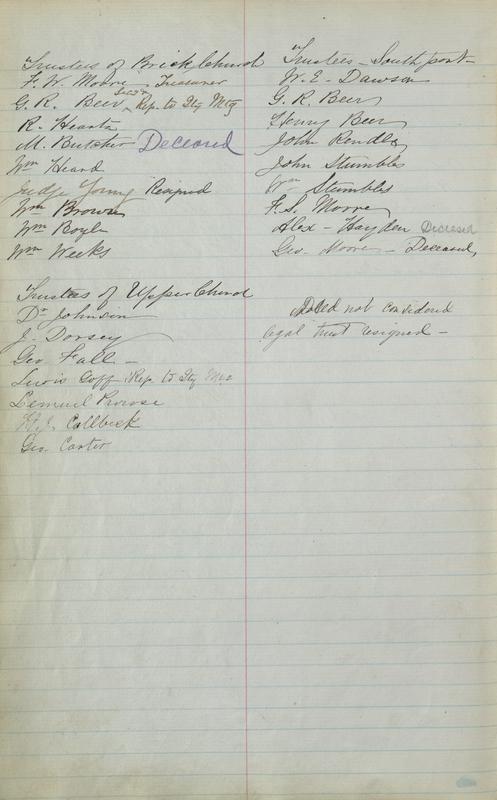 Trustees of Brick Church
F. W. Moore - Treasurer
G. R. Beer Sec'y Rep. to Qty Mtg
R. Heartz
M. Butcher Deceased
Wm Heard
Judge Young Resigned
Wm Brown
Wm Boyle
Wm Weeks
Trustees of Upper Church
Dr Johnson
J. Dorsey
Geo Fall -
Lewis Goff Rep. to Qty
Lemuel Prowse
H. J. Callbeck
Geo. Carter
Trustees - Southport -
W. E. Dawson
G. R. Beer
Henry Beer
John Rendle
John Stumbles
Wm Stumbles
F. S. Moore
Alex - Hayden Deceased
Geo. Moore - Deceased,
Deed not considered
legal trust resigned -